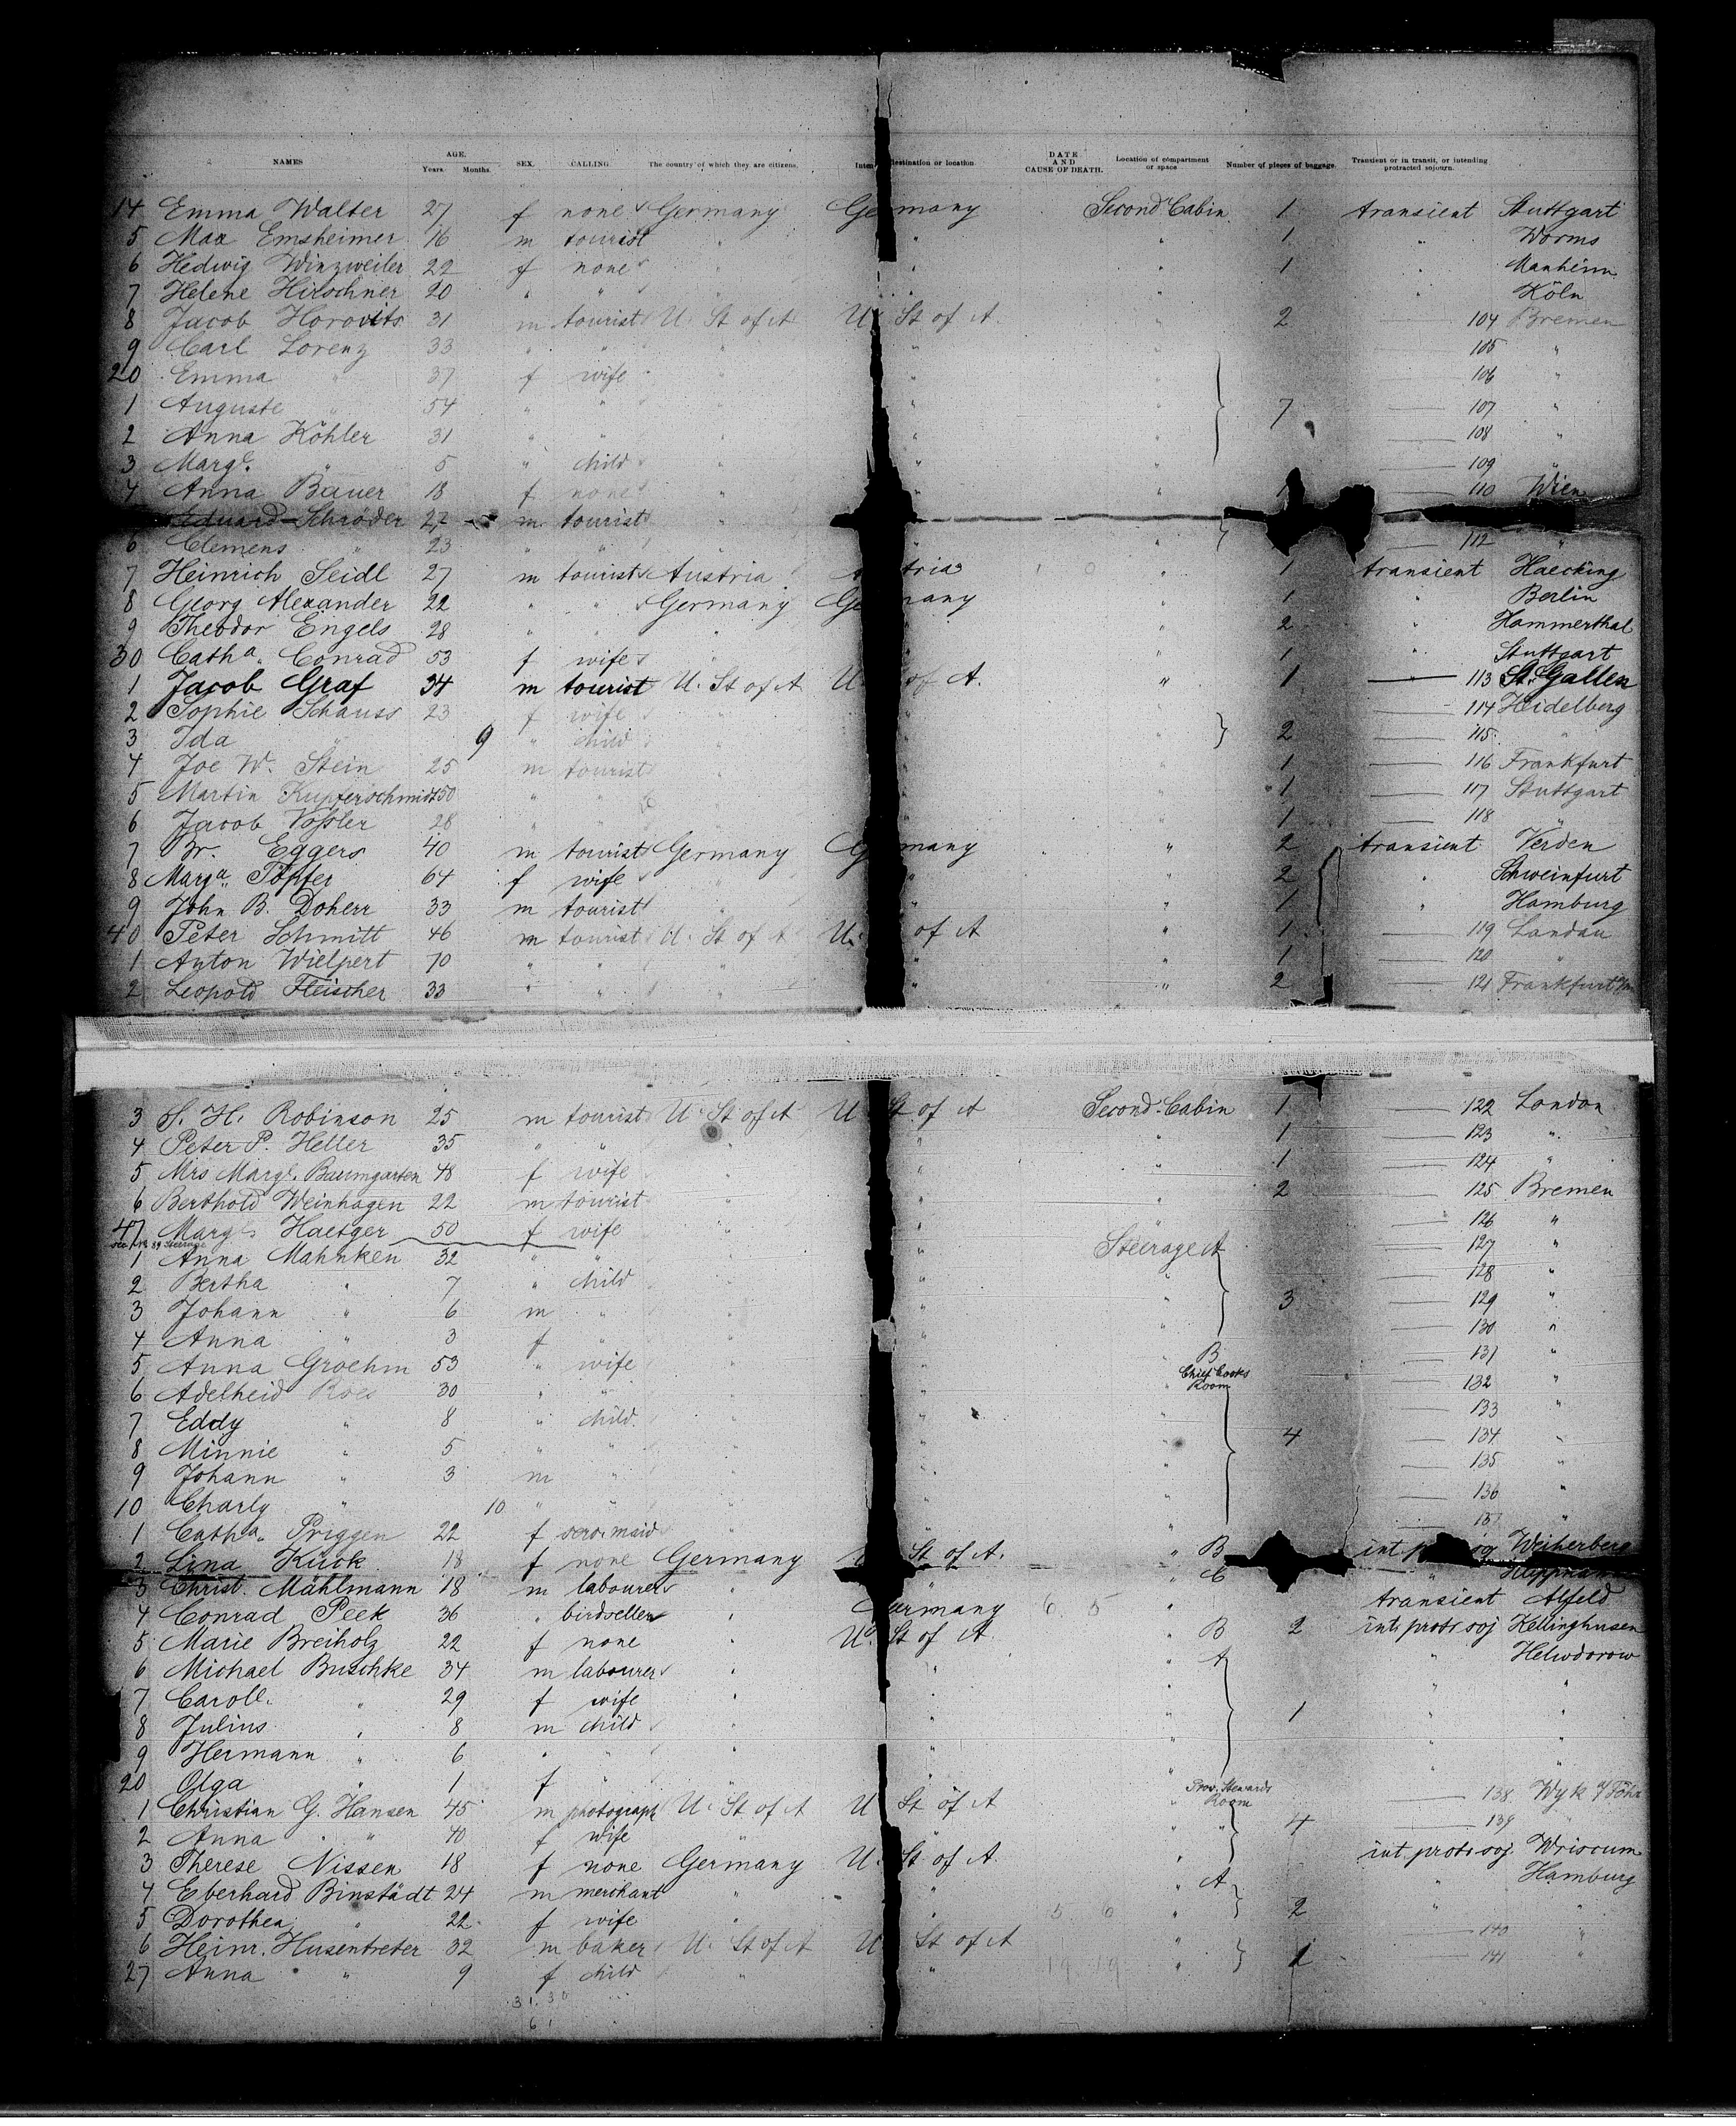 NAMES AGE. Years. Months. SEX. CALLING. The country of which they are citizens. Destination or location. DATE AND CAUSE OF DEATH. Location of compartment or space Number of pieces of baggage. Transient or in transit, or intending protracted sojourn.
14 Emma Walter 27 f none Germany Germany Second Cabin 1 transient Stuttgart
5 Max Emsheimer 16 m tourist " " 1 " Worms
6 Hedwig Winzweiler 22 f none " " 1 " Manheim
7 Helene Hirschner 20 " " " " " Köln
8 Jacob Horovits 31 m tourist U. St of A U. St of A. " 2 104 Bremen
9 Carl Lorenz 33 " " " " " 105 "
20 Emma " 37 f wife " " " 106 "
1 Auguste " 54 " " " " " 7 107 "
2 Anna Köhler 31 " " " " " 108 "
3 Marg. " 5 " child " " " 109 "
4 Anna Bauer 18 f none " " " 110 Wien
Eduard Schröder 27 m tourist "
6 Clemens " 23 " " " " 112 "
7 Heinrich Seidl 27 m tourist Austria Austria " 1 transient Haecking
8 Georg Alexander 22 " " Germany Germany " 1 " Berlin
9 Theodor Engels 28 " " " " " 2 " Hammerthal
30 Catha. Conrad 53 f wife " " " 1 " Stuttgart
1 Jacob Graf 34 m tourist U. St of A U. of A. " 1 113 St. Gallen
2 Sophie Schauss 23 f wife " " " 114 Heidelberg
3 Ida " 9 " child " " " 2 115 "
4 Joe W. Stein 25 m tourist " " " 1 116 Frankfurt
5 Martin Kupferschmidt 50 " " " " " 1 117 Stuttgart
6 Jacob Vossler 28 " " " " " 1 118 "
7 Br. Eggers 40 m tourist Germany Germany " 2 transient Verden
8 Marga. Töpfer 64 f wife " " " 2 " Schweinfurt
9 John B. Doherr 33 m tourist " " " 1 " Hamburg
40 Peter Schmitt 46 m tourist U. St of A U. of A " 1 119 Landau
1 Anton Wielpert 70 " " " " " 1 120 "
2 Leopold Fleischer 33 " " " " " 2 121 Frankfurt
3 S. H. Robinson 25 m tourist U. St of A U St of A Second Cabin 1 122 London
4 Peter P. Heller 35 " " " " " 1 123 "
5 Mrs Marg. Baumgarten 48 f wife " " " 1 124 "
6 Berthold Weinhagen 22 m tourist " " " 2 125 Bremen
47 Marg. Haetger 50 f wife " " " 126 "
1 Anna Mahnken 32 " " " " Steerage A 127 "
2 Bertha " 7 " child " " " 128 "
3 Johann " 6 m " " " " 3 129 "
4 Anna " 3 f " " " " 130 "
5 Anna Groehm 53 " wife " " " B 131 "
6 Adelheid Roes 30 " " " " " Chief Cooks Room 132 "
7 Eddy " 8 " child " " " 133 "
8 Minnie " 5 " " " " " 4 134 "
9 Johann " 3 m " " " " 135 "
10 Charly " 10 " " " " " 136 "
1 Catha. Priggen 22 f serv. maid " " " 137 "
2 Lina Kück 18 f none Germany St of A. " B Weiherberg
3 Christ. Mählmann 18 m labourer " " " C "
4 Conrad Peek 36 " birdseller " Germany 6 5 " transient Alfeld
5 Marie Breiholz 22 f none " U. St of A. " B 2 int. protr. soj Kellinghusen
6 Michael Buschke 34 m labourer " " " A " Helwdorow
7 Caroll. " 29 f wife " " " " "
8 Julius " 8 m child " " " 1 " "
9 Hermann " 6 " " " " " " "
20 Olga " 1 f " " " " " "
1 Christian G. Hansen 45 m photograph U. St of A U St of A " Prov. Stewards Room 138 Wyk a/Föhr
2 Anna " 40 f wife " " " " 4 139 "
3 Therese Nissen 18 f none Germany U. St of A " int. protr. soj. Wriocum
4 Eberhard Binstädt 24 m merchant " " " A " Hamburg
5 Dorothea " 22 f wife " " 5 6 " 2 " "
6 Heinr. Husentreter 32 m baker U. St of A U St of A " 140 "
27 Anna " 9 f child " " 19 19 " 1 141 "
31 30
61